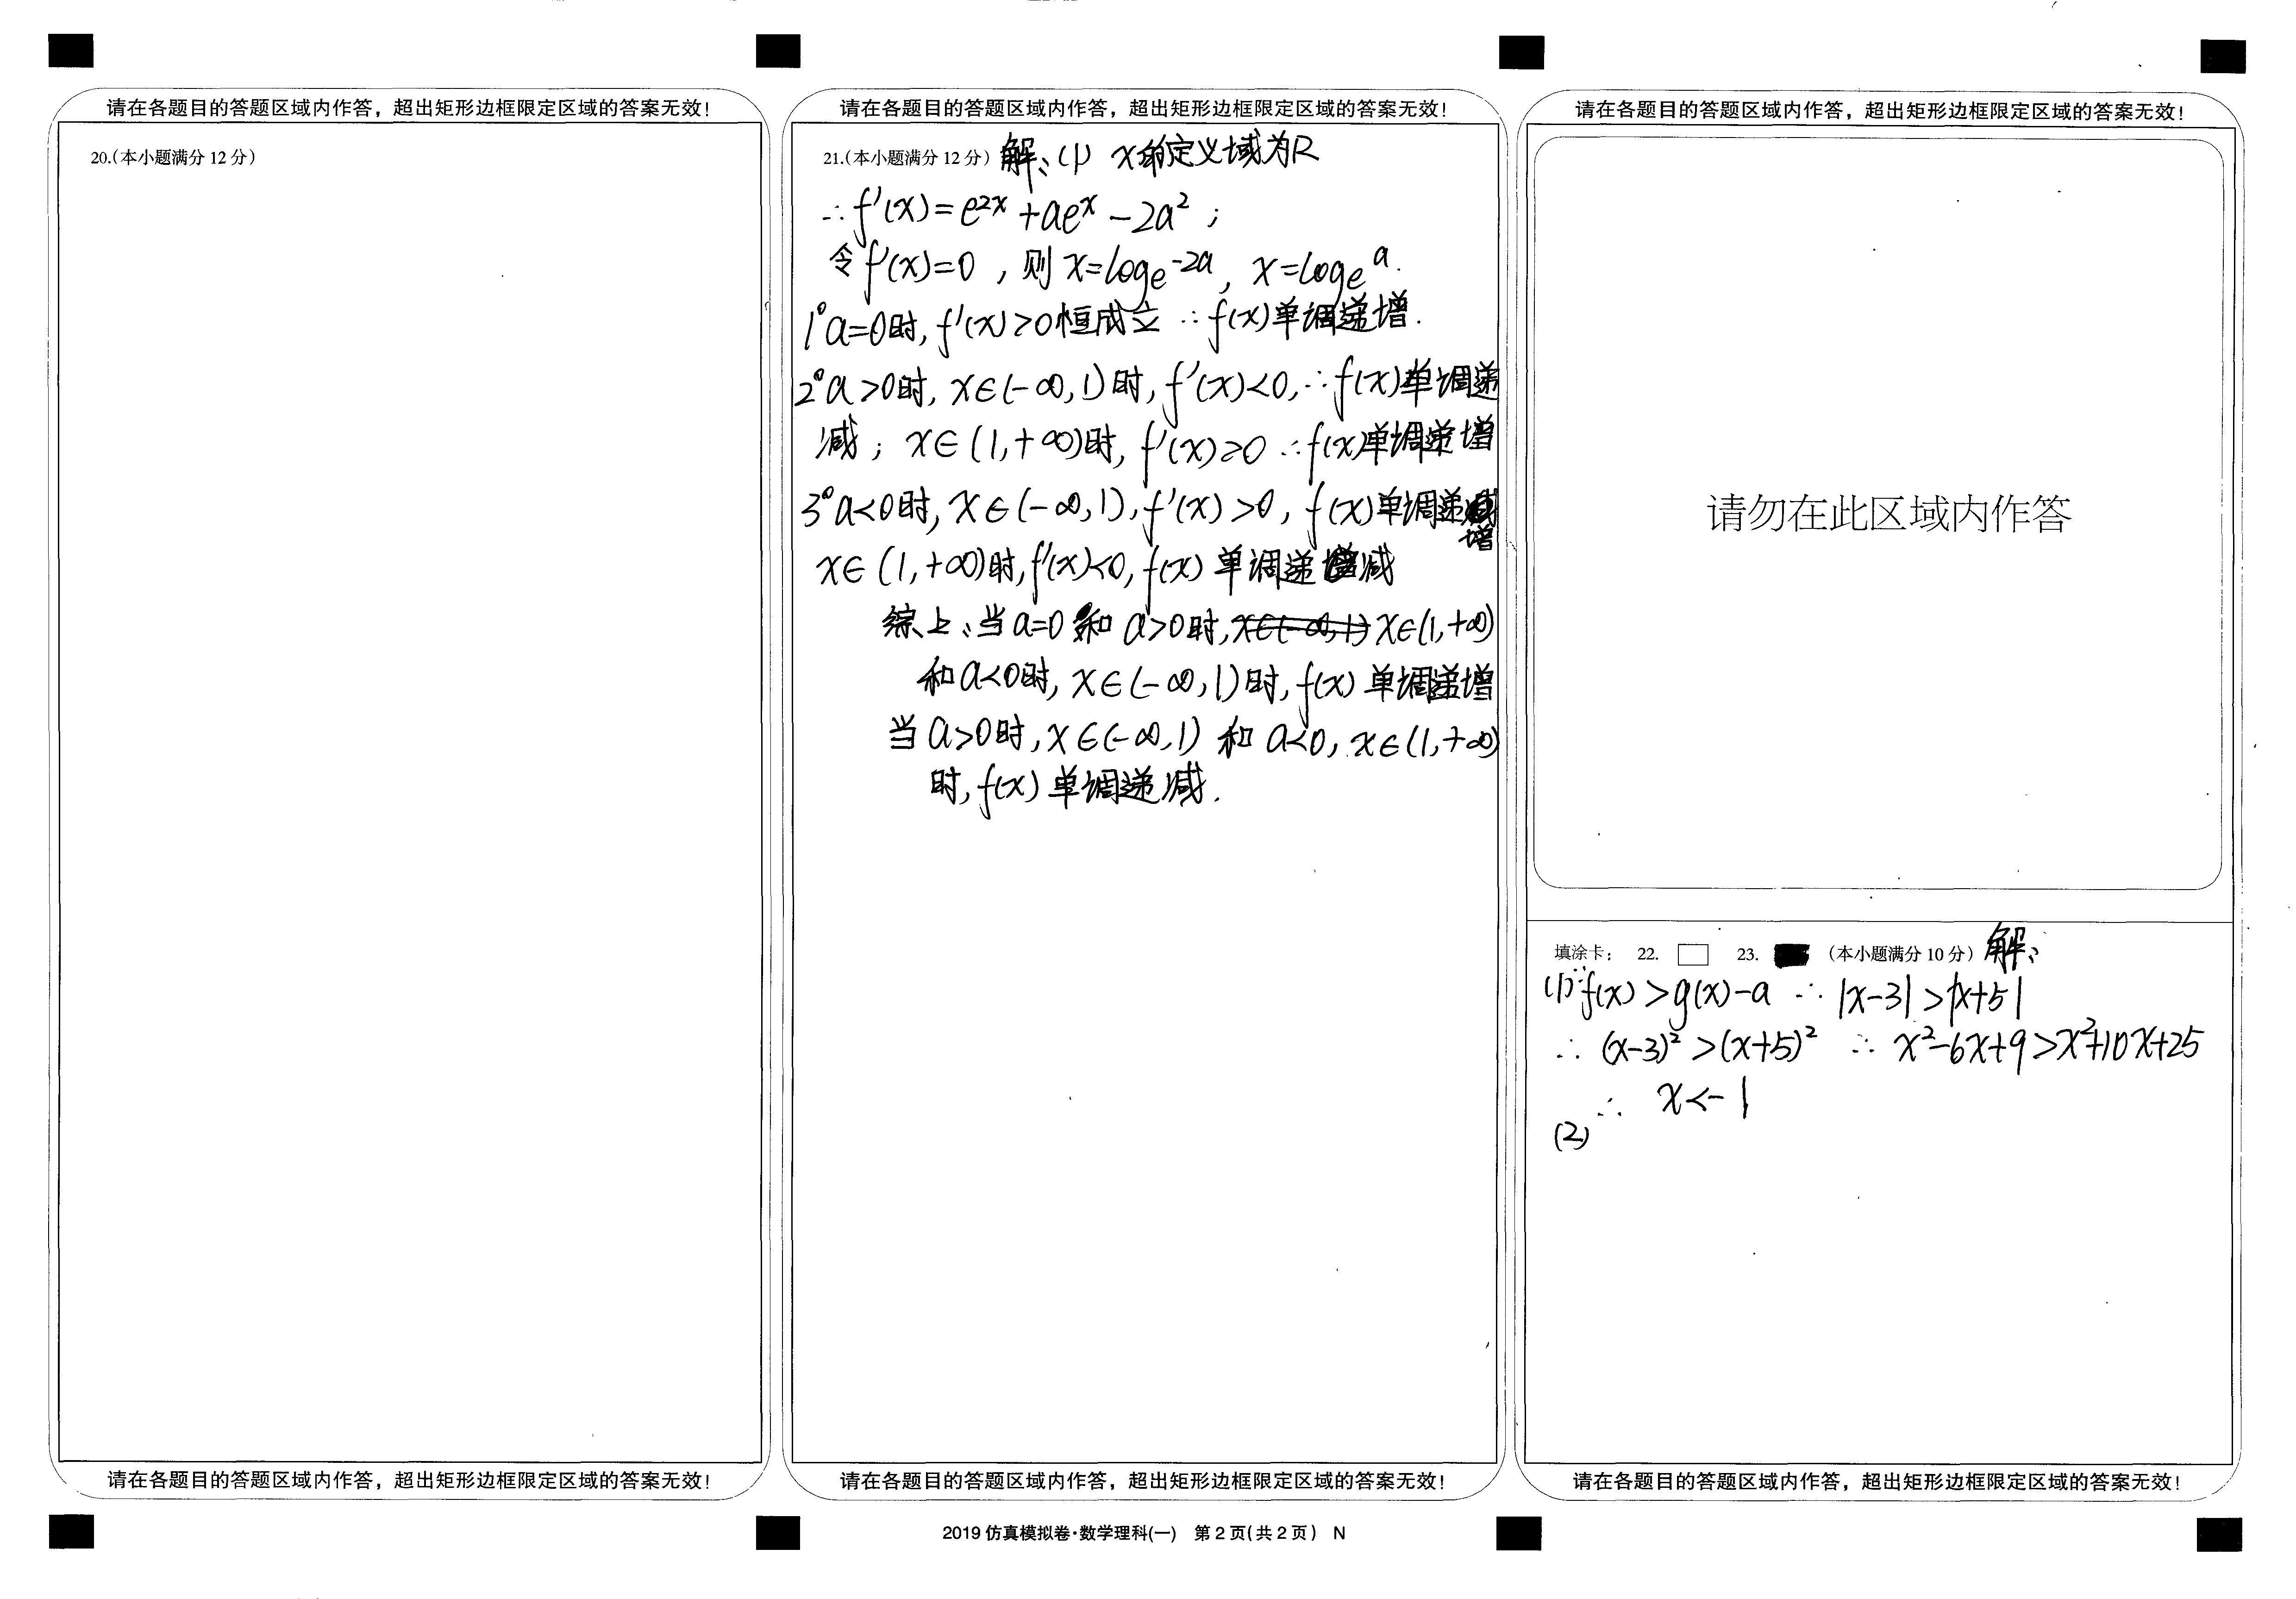 请在各题目的答题区域内作答，超出矩形边框限定区域的答案无效！
20.(本小题满分12分)
请在各题目的答题区域内作答，超出矩形边框限定区域的答案无效！
请在各题目的答题区域内作答，超出矩形边框限定区域的答案无效！
21.(本小题满分12分) 解：(1) x的定义域为R
∴f'(x)=e²ˣ+aeˣ-2a²；
令f'(x)=0，则x=logₑ-2a，x=logₑa.
1°a=0时，f'(x)>0恒成立∴f(x)单调递增.
2°a>0时，x∈(-∞,1)时，f'(x)<0，∴f(x)单调递
减；x∈(1,+∞)时，f'(x)>0∴f(x)单调递增
3°a<0时，x∈(-∞,1)，f'(x)>0，f(x)单调递增
x∈(1,+∞)时，f'(x)<0，f(x)单调递减
综上：当a=0和a>0时，x∈(-∞,1)x∈(1,+∞)
和a<0时，x∈(-∞,1)时，f(x)单调递增
当a>0时，x∈(-∞,1)和a<0，x∈(1,+∞)
时，f(x)单调递减.
请在各题目的答题区域内作答，超出矩形边框限定区域的答案无效！
2019仿真模拟卷·数学理科(一) 第2页(共2页) N
请在各题目的答题区域内作答，超出矩形边框限定区域的答案无效！
请勿在此区域内作答
填涂卡： 22. 23. (本小题满分10分) 解：
(1)∵f(x)>g(x)-a ∴|x-3|>|x+5|
∴(x-3)²>(x+5)² ∴x²-6x+9>x²+10x+25
∴ x<-1
(2)
请在各题目的答题区域内作答，超出矩形边框限定区域的答案无效！